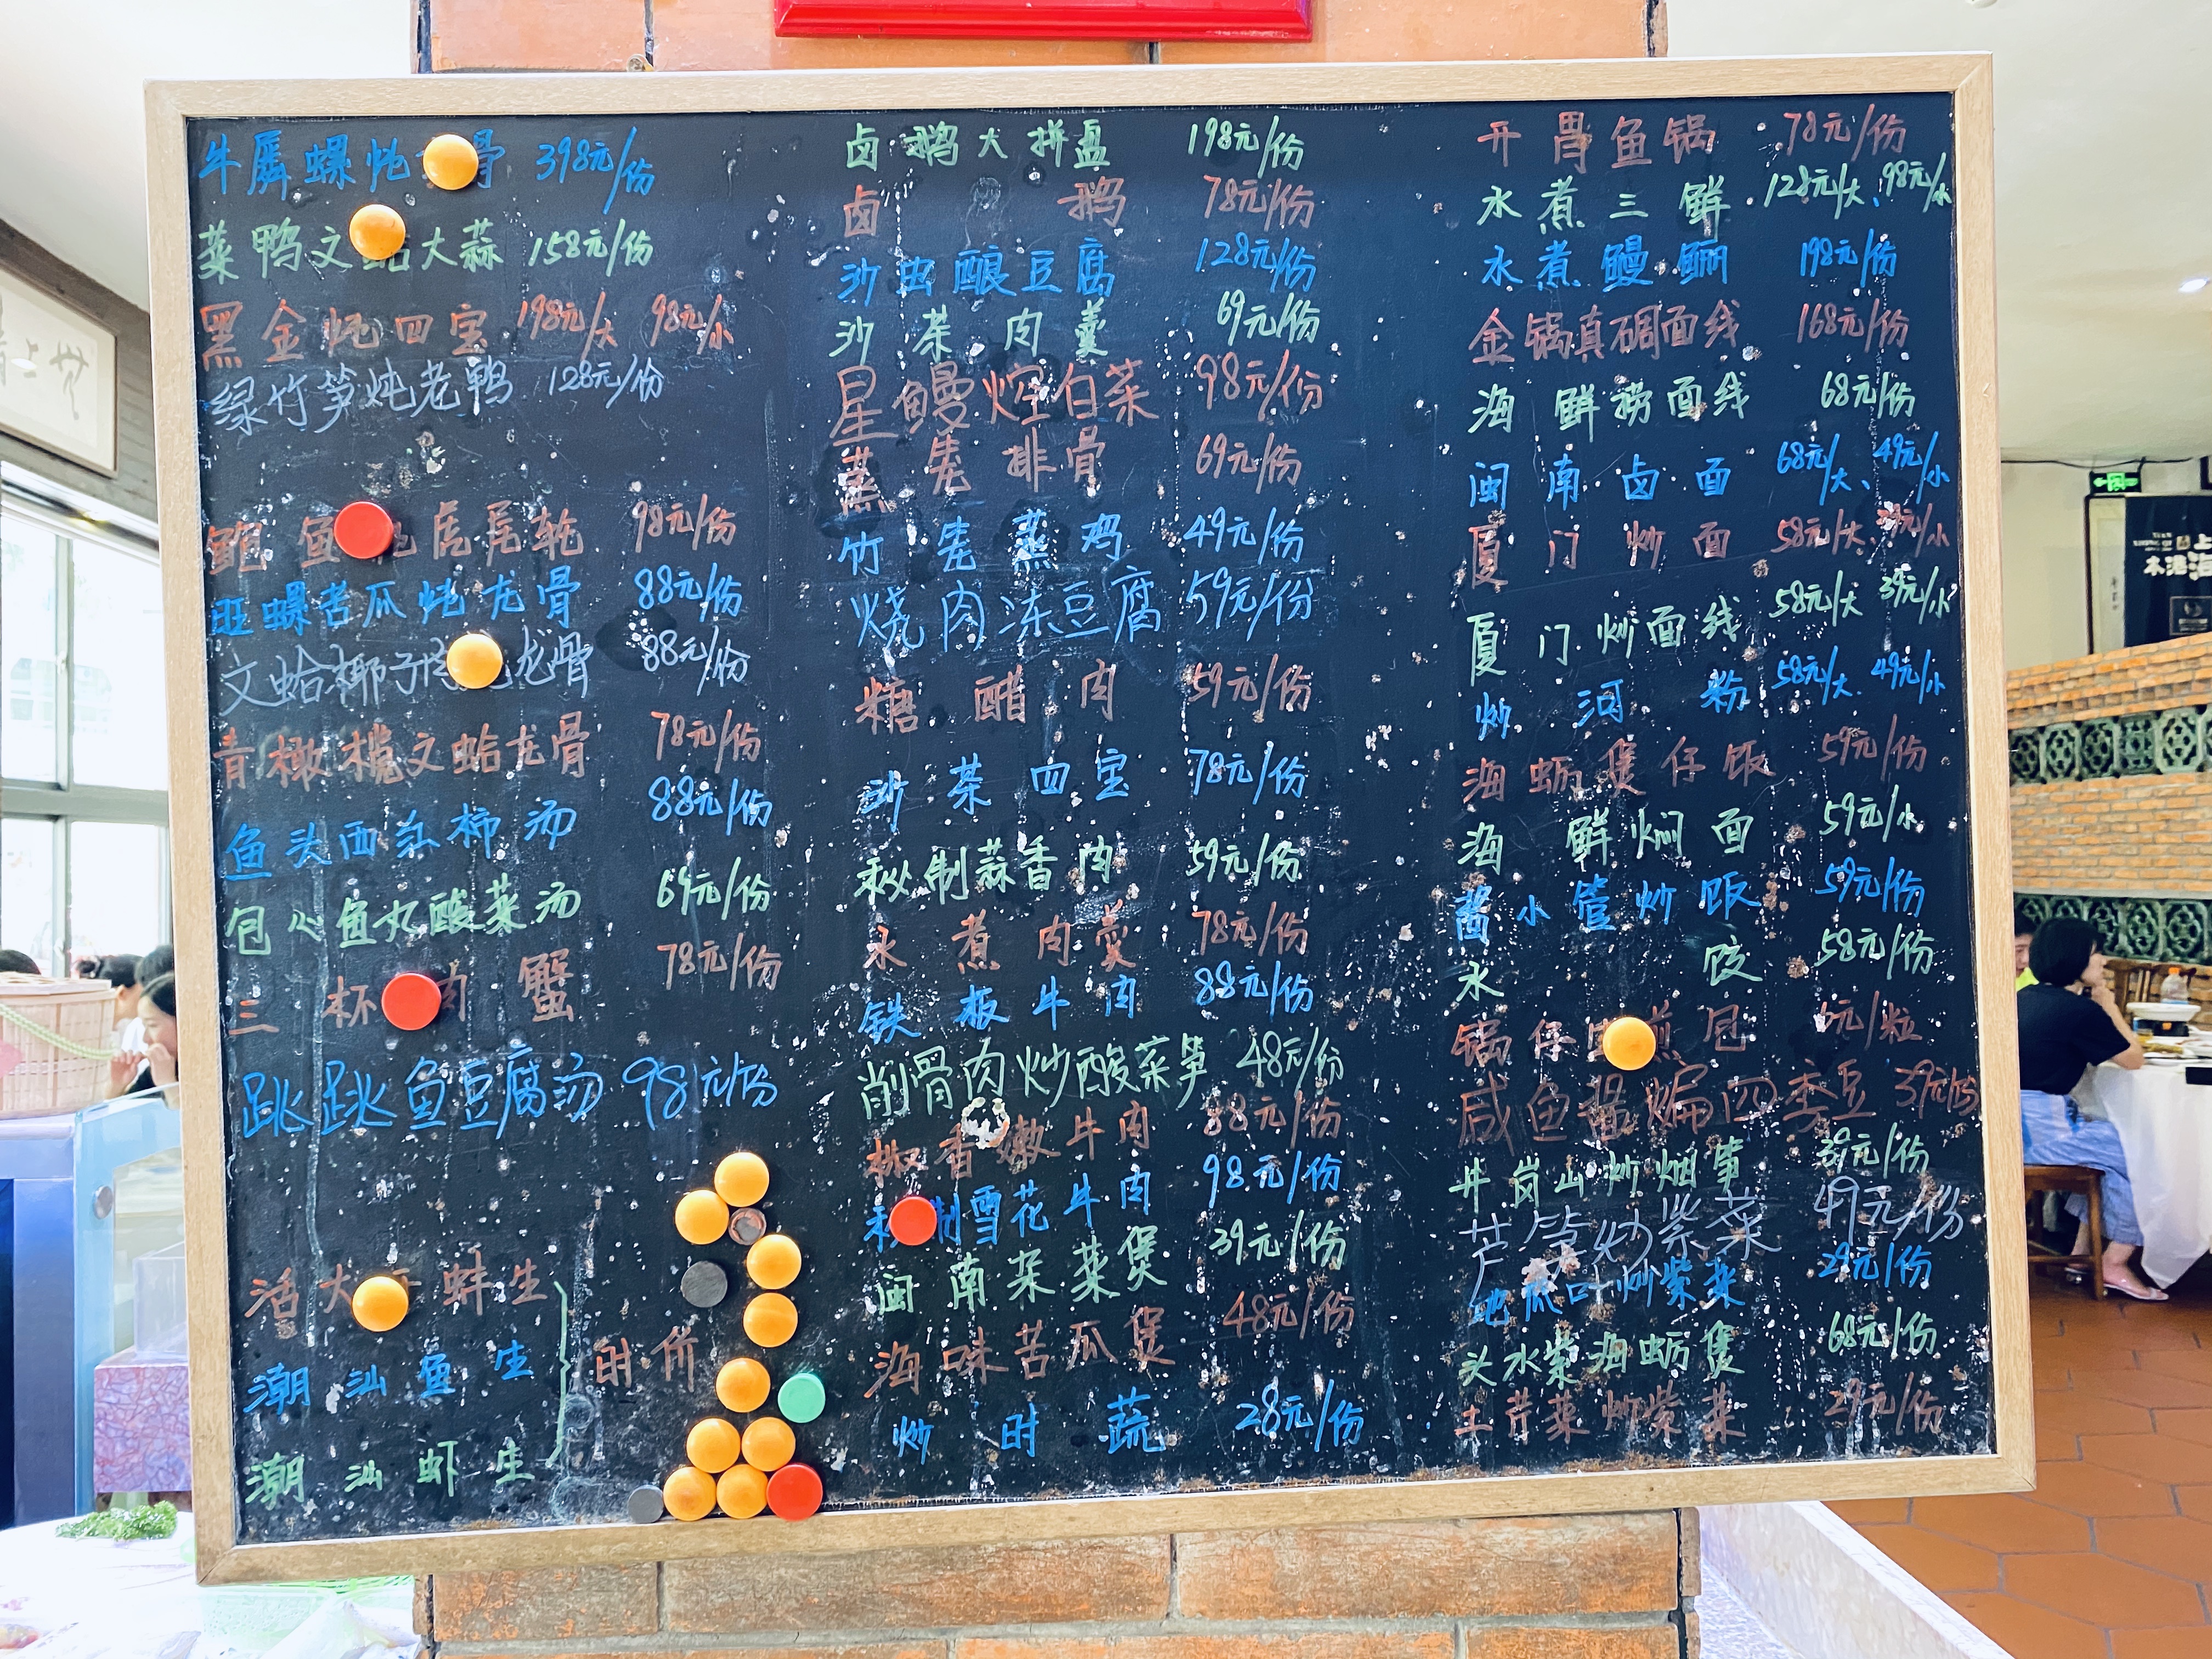 牛屪螺炖 骨 398元/份
菜鸭文 大蒜 158元/份
黑金炖四宝 198元/大 98元/小
绿竹笋炖老鸭 128元/份
鲍鱼 虎尾轮 98元/份
旺螺苦瓜炖龙骨 88元/份
文蛤椰子 龙骨 88元/份
青橄榄文蛤龙骨 78元/份
鱼头西红柿汤 88元/份
包心鱼丸酸菜汤 69元/份
三杯 肉蟹 78元/份
跳跳鱼豆腐汤 98元/份
活大 蚌生
潮汕鱼生 时价
潮汕虾生
卤鹅大拼盘 198元/份
卤鹅 78元/份
沙虫酿豆腐 128元/份
沙茶肉羹 69元/份
星鳗焢白菜 98元/份
蒸羌排骨 69元/份
竹羌蒸鸡 49元/份
烧肉冻豆腐 59元/份
糖醋肉 59元/份
沙茶四宝 78元/份
秘制蒜香肉 59元/份
水煮肉羹 78元/份
铁板牛肉 88元/份
削骨肉炒酸菜笋 48元/份
椒香嫩牛肉 88元/份
制雪花牛肉 98元/份
闽南杂菜煲 39元/份
海味苦瓜煲 48元/份
炒时蔬 28元/份
开胃鱼锅 78元/份
水煮三鲜 128元/大、98元/小
水煮鳗鲡 198元/份
金锅真碉面线 168元/份
海鲜捞面线 68元/份
闽南卤面 68元/大、49元/小
厦门炒面 58元/大、39元/小
厦门炒面线 58元/大 39元/小
炒河粉 58元/大 49元/小
海蛎煲仔饭 59元/份
海鲜焖面 59元/小
酱小管炒饭 59元/份
水饺 58元/份
锅仔 煎包 6元/粒
咸鱼酱煸四季豆 39元/份
井岗山炒烟笋 39元/份
芦笋炒紫菜 49元/份
地瓜叶炒紫菜 29元/份
头水紫海蛎煲 68元/份
土芹菜炒紫菜 29元/份